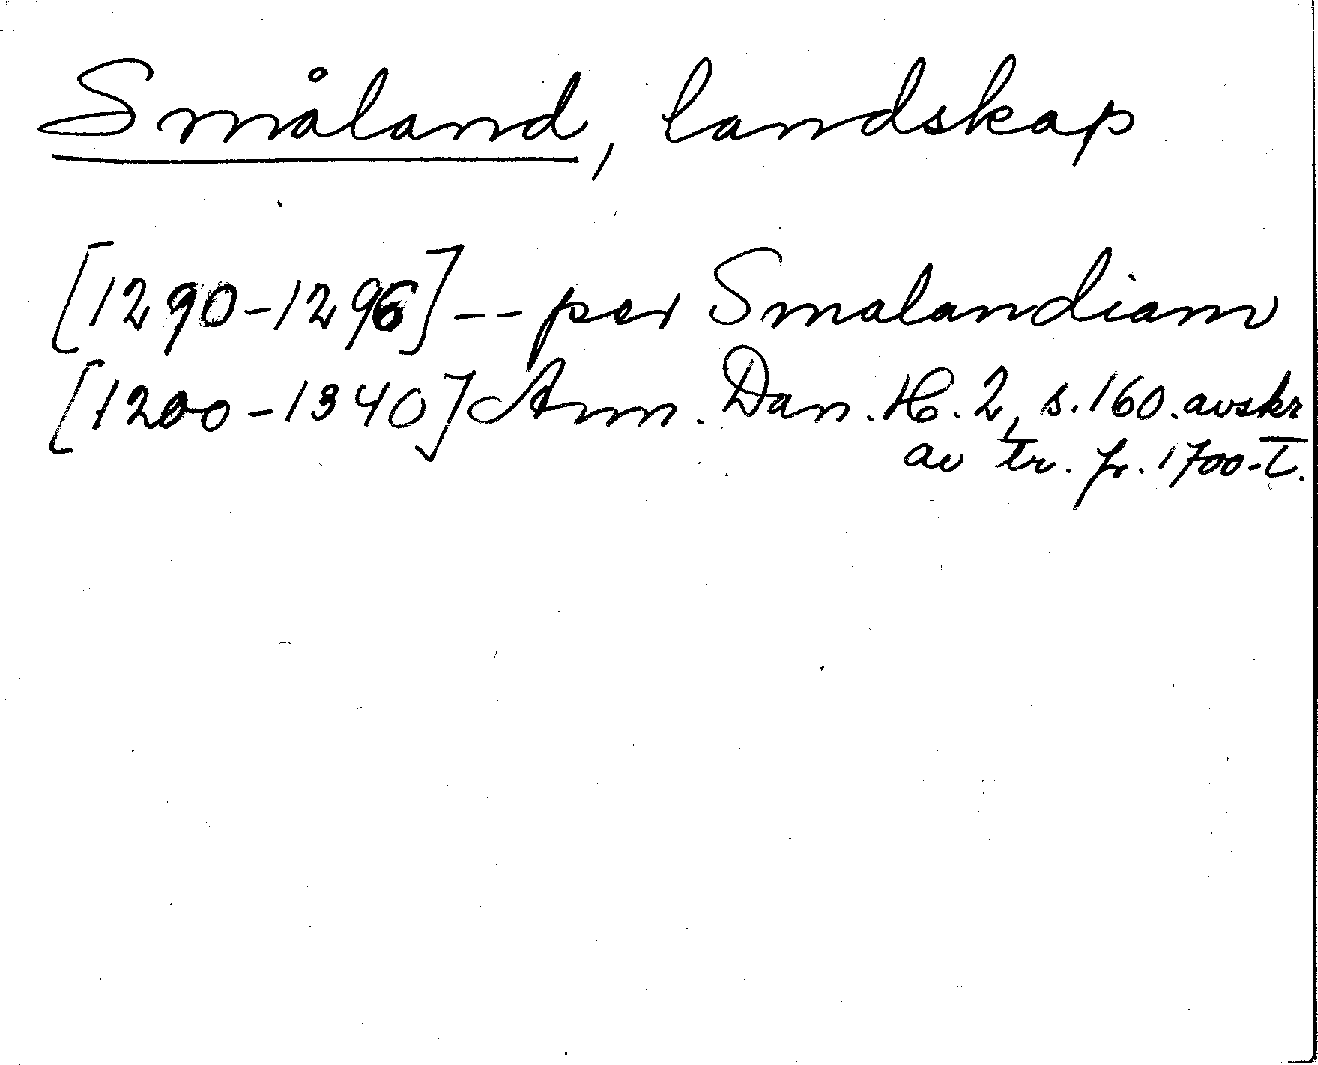 Småland, landskap
[1290-1296] -- per Smalandiam
[1200-1340] Ann. Dan. H. 2, s. 160. avskr
av tr. fr. 1700-T.